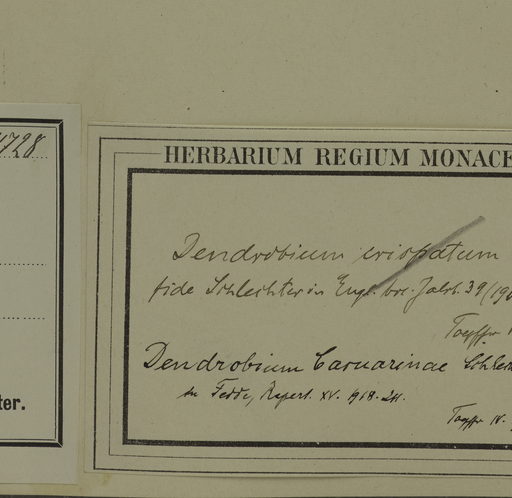 4728
ter.
HERBARIUM REGIUM MONACE
Dendrobium crispatum
fide Schlechter in Engl. bot. Jahrb. 39 (190
Dendrobium Casuarinae Schlech
in Fedde, Repert. XV. 1918.
IV.